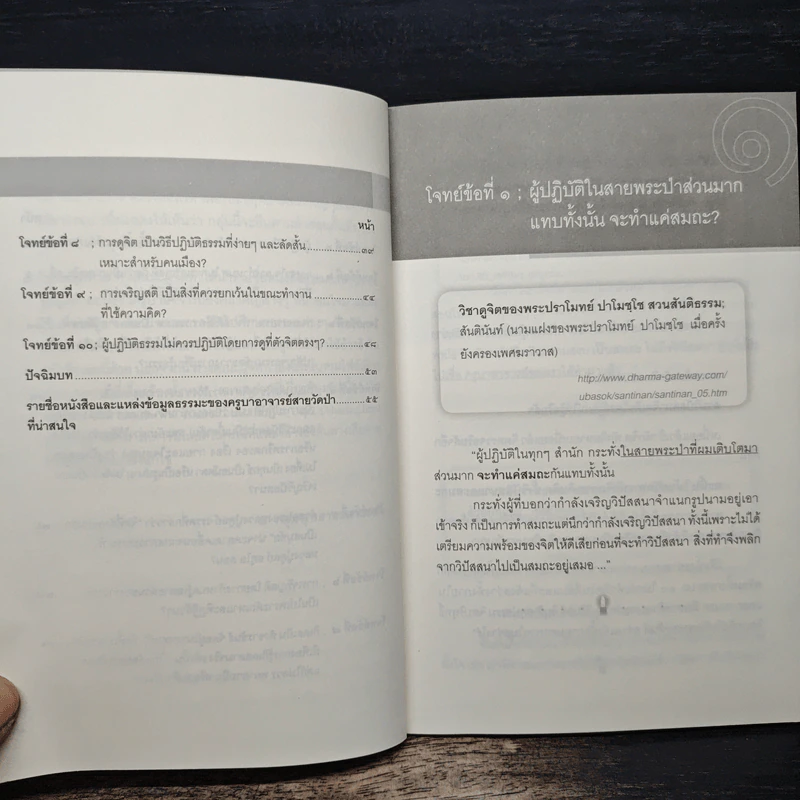 หน้า
โจทย์ข้อที่ ๘ ; การดูจิต เป็นวิธีปฏิบัติธรรมที่ง่ายๆ และลัดสั้น ........................๓๙
เหมาะสำหรับคนเมือง?
โจทย์ข้อที่ ๙ ; การเจริญสติ เป็นสิ่งที่ควรยกเว้นในขณะทำงาน ........................๔๔
ที่ใช้ความคิด?
โจทย์ข้อที่ ๑๐; ผู้ปฏิบัติธรรมไม่ควรปฏิบัติโดยการดูที่ตัวจิตตรงๆ? ........................๔๘
ปัจฉิมบท ........................๕๓
รายชื่อหนังสือและแหล่งข้อมูลธรรมะของครูบาอาจารย์สายวัดป่า ........................๕๕
ที่น่าสนใจ
โจทย์ข้อที่ ๑ ; ผู้ปฏิบัติในสายพระป่าส่วนมาก
แทบทั้งนั้น จะทำแค่สมถะ?
วิชาดูจิตของพระปราโมทย์ ปาโมชฺโช สวนสันติธรรม;
สันตินันท์ (นามแฝงของพระปราโมทย์ ปาโมชฺโช เมื่อครั้ง
ยังครองเพศฆราวาส)
http://www.dharma-gateway.com/
ubasok/santinan/santinan_05.htm
"ผู้ปฏิบัติในทุกๆ สำนัก กระทั่งในสายพระป่าที่ผมเติบโตมา
ส่วนมาก จะทำแค่สมถะกันแทบทั้งนั้น
กระทั่งผู้ที่บอกว่ากำลังเจริญวิปัสสนาจำแนกรูปนามอยู่เอา
เข้าจริง ก็เป็นการทำสมถะแต่นึกว่ากำลังเจริญวิปัสสนา ทั้งนี้เพราะไม่ได้
เตรียมความพร้อมของจิตให้ดีเสียก่อนที่จะทำวิปัสสนา สิ่งที่ทำจึงพลิก
จากวิปัสสนาไปเป็นสมถะอยู่เสมอ ..."